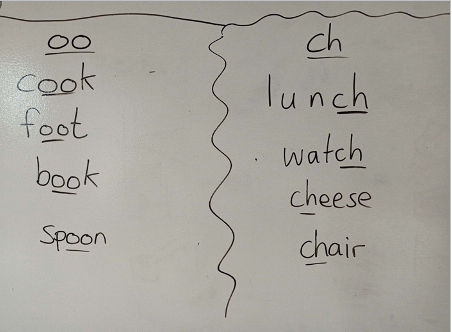 oo
cook
foot
book
spoon
ch
lunch
watch
cheese
chair